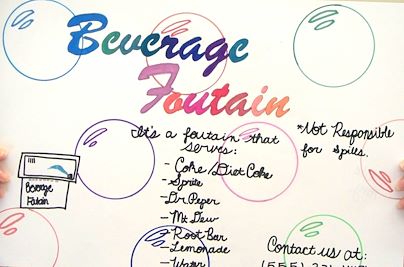 Beverage
Foutain
It's a foutain that
serves:
- Coke/Diet Coke
- Sprite
- Dr Peper
- Mt Dew
- Root Bar
- Lemonade
- Water
*Not Responsible
for spills.
Beverage
Fotain
Contact us at: